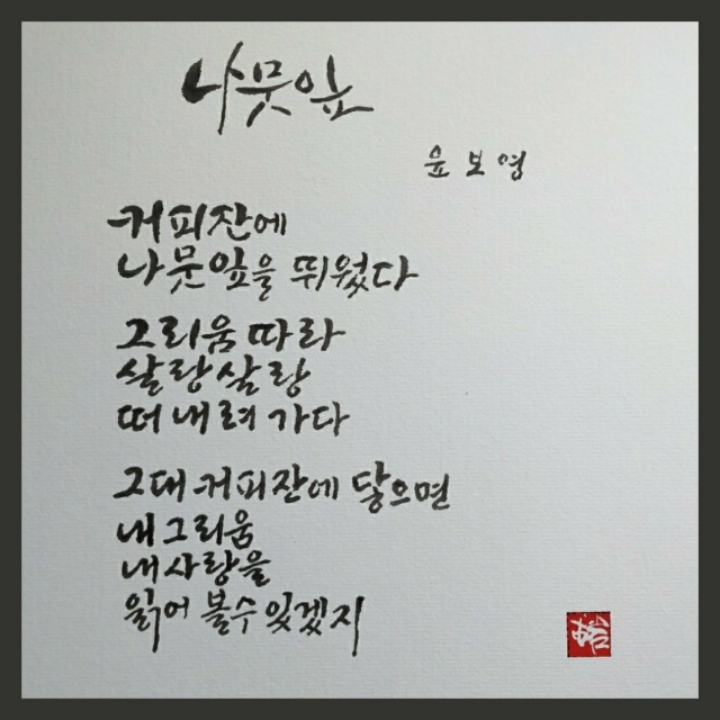 나뭇잎
윤보영
커피잔에
나뭇잎을 뛰웠다
그리움 따라
살랑살랑
떠내려 가다
그대 커피잔에 닿으면
내 그리움
내 사랑을
읽어 볼 수 있겠지